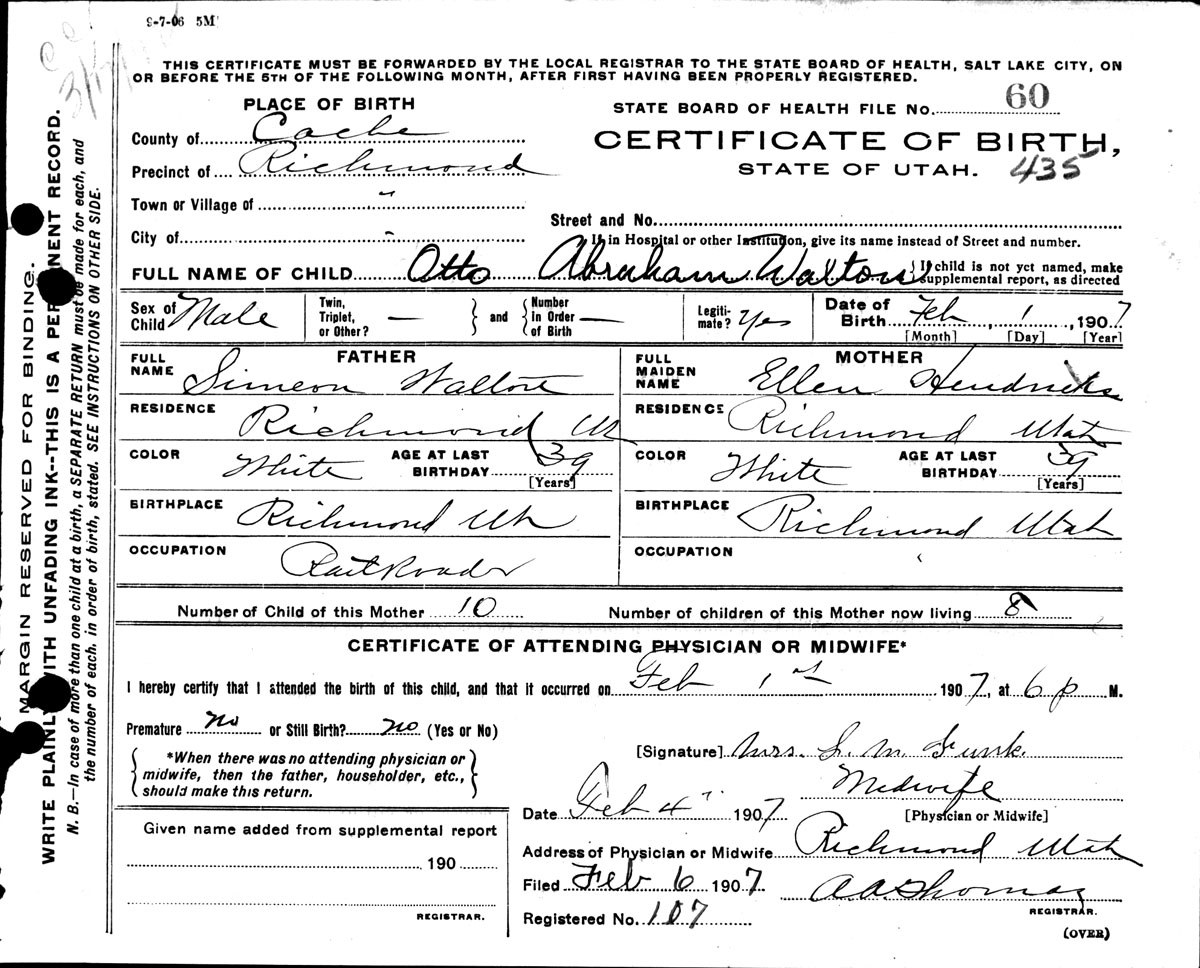 9-7-06 5M
THIS CERTIFICATE MUST BE FORWARDED BY THE LOCAL REGISTRAR TO THE STATE BOARD OF HEALTH, SALT LAKE CITY, ON
OR BEFORE THE 5TH OF THE FOLLOWING MONTH, AFTER FIRST HAVING BEEN PROPERLY REGISTERED.
PLACE OF BIRTH
STATE BOARD OF HEALTH FILE No. 60
County of Cache
CERTIFICATE OF BIRTH,
Precinct of Richmond
STATE OF UTAH. 435
Town or Village of "
Street and No.
City of "
If in Hospital or other Institution, give its name instead of Street and number.
FULL NAME OF CHILD Otto Abraham Walton { If child is not yet named, make
supplemental report, as directed
Sex of Child Male
Twin, Triplet, or Other? —
and
Number In Order of Birth —
Legiti-mate? Yes
Date of Birth Feb, 1, 1907
[Month] [Day] [Year]
FATHER
FULL NAME Simeon Walton
RESIDENCE Richmond Ut
COLOR White AGE AT LAST BIRTHDAY 39
[Years]
BIRTHPLACE Richmond Ut
OCCUPATION Rail Roader
MOTHER
FULL MAIDEN NAME Ellen Hendricks
RESIDENCE Richmond Utah
COLOR White AGE AT LAST BIRTHDAY 39
[Years]
BIRTHPLACE Richmond Utah
OCCUPATION
Number of Child of this Mother 10 Number of children of this Mother now living 8
CERTIFICATE OF ATTENDING PHYSICIAN OR MIDWIFE*
I hereby certify that I attended the birth of this child, and that it occurred on Feb 1st 1907, at 6 p M.
Premature no or Still Birth? no (Yes or No)
*When there was no attending physician or
midwife, then the father, householder, etc.,
should make this return.
[Signature] Mrs. L. M. Funk.
Midwife
[Physician or Midwife]
Date Feb 4" 1907
Address of Physician or Midwife Richmond Utah
Filed Feb 6 1907 A.A. Thomas
REGISTRAR.
Registered No. 107
(OVER)
Given name added from supplemental report
190
REGISTRAR.
MARGIN RESERVED FOR BINDING.
WRITE PLAINLY WITH UNFADING INK--THIS IS A PERMANENT RECORD.
N. B.—In case of more than one child at a birth, a SEPARATE RETURN must be made for each, and
the number of each, in order of birth, stated. SEE INSTRUCTIONS ON OTHER SIDE.